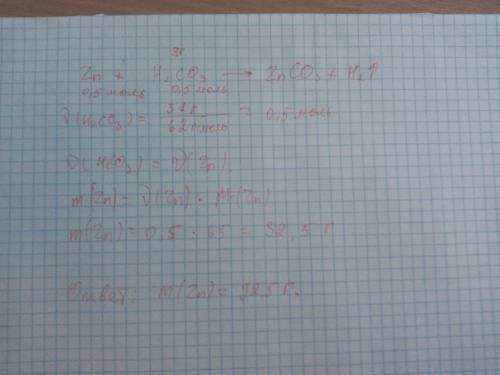 31
Zn + H₂CO₃ → ZnCO₃ + H₂↑
0,5 моль 0,5 моль
ν(H₂CO₃) = 31 г / 62 г/моль = 0,5 моль
ν(H₂CO₃) = ν(Zn)
m(Zn) = ν(Zn) · Mr(Zn)
m(Zn) = 0,5 · 65 = 32,5 г
Ответ: m(Zn) = 32,5 г.